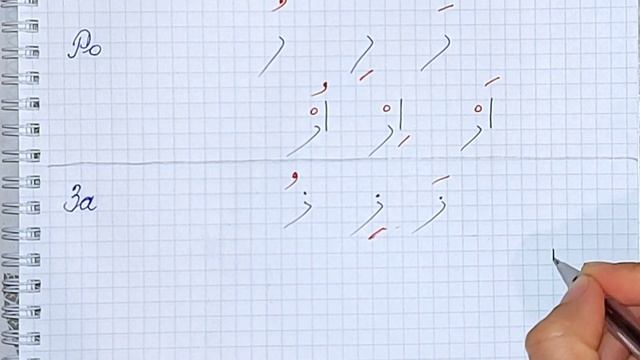 Ро رَ رِ رُ
اَرْ اِرْ اُرْ
За زَ زِ زُ